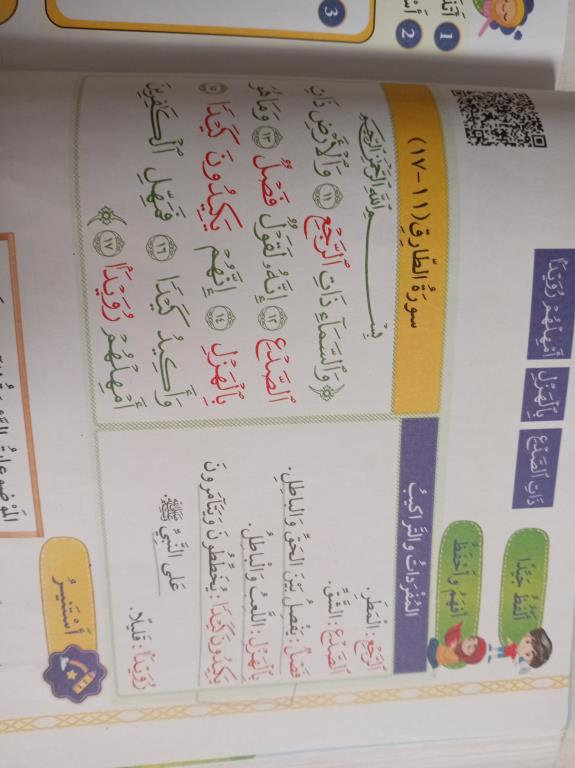 أَلْفُظُ جَيِّدًا
ذَاتِ ٱلصَّدْعِ
بِٱلْهَزْلِ
أَمْهِلْهُمْ رُوَيْدًا
أَفْهَمُ وَأَحْفَظُ
سورَةُ الطّارِقِ (١١-١٧)
بِسْمِ ٱللَّهِ ٱلرَّحْمَٰنِ ٱلرَّحِيمِ
وَٱلسَّمَآءِ ذَاتِ ٱلرَّجْعِ ١١ وَٱلْأَرْضِ ذَاتِ
ٱلصَّدْعِ ١٢ إِنَّهُۥ لَقَوْلٌ فَصْلٌ ١٣ وَمَا هُوَ
بِٱلْهَزْلِ ١٤ إِنَّهُمْ يَكِيدُونَ كَيْدًا ١٥
وَأَكِيدُ كَيْدًا ١٦ فَمَهِّلِ ٱلْكَٰفِرِينَ
أَمْهِلْهُمْ رُوَيْدًا ١٧
المُفْرَداتُ والتَّراكيبُ
ٱلرَّجْعِ: المَطَرِ.
ٱلصَّدْعِ: الشَّقِّ.
فَصْلٌ: يَفْصِلُ بَيْنَ الحَقِّ وَالباطِلِ.
بِٱلْهَزْلِ: اللَّعِبُ وَالْباطِلُ.
يَكِيدُونَ كَيْدًا: يُخَطِّطُونَ وَيَتَآمَرونَ
عَلى النَّبِيِّ ﷺ.
رُوَيْدًا: قَليلًا.
أَسْتَنيرُ
1
2
3